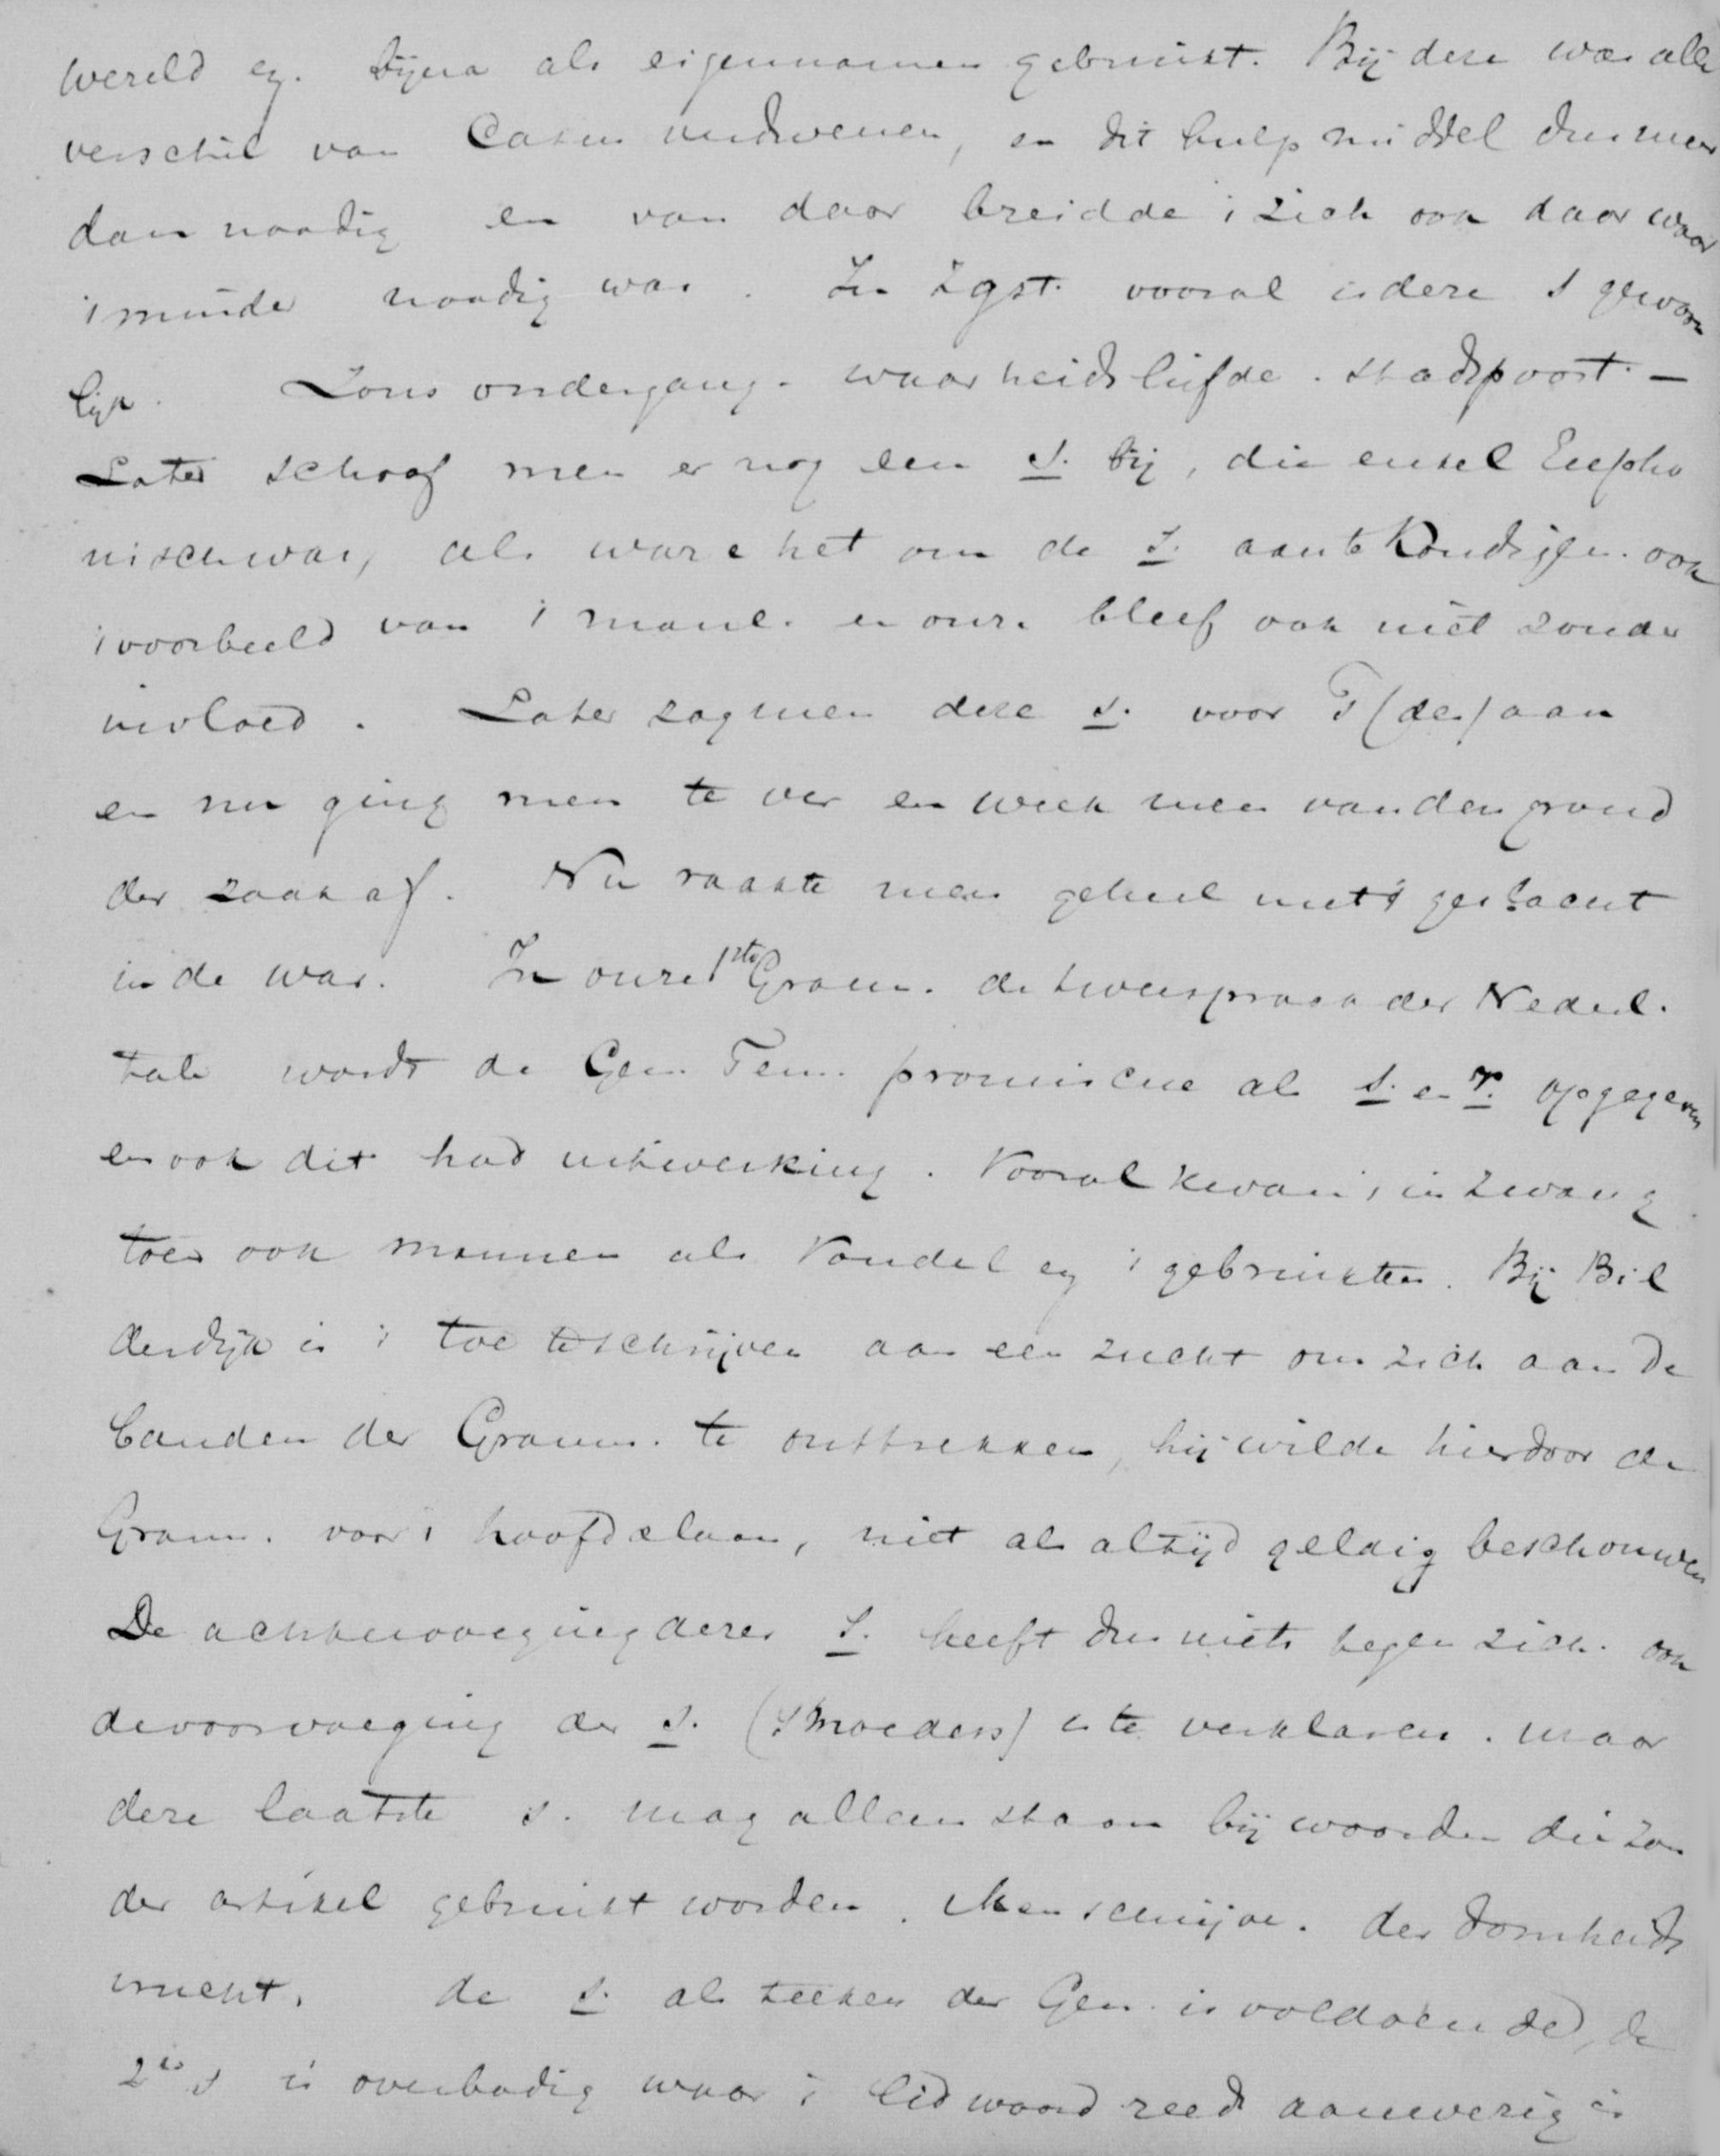 wereld eg. bijna als eigennamen gebruikt. Bij deze was alle
verschil van Casus verdwenen, en dit hulpmiddel dus meer
dan noodig en van daar breidde 't zich ook daar waar
't minder noodig was. In zgst. vooral is deze s gewoon
lijk. Zons ondergang. waarheidsliefde. stadspoort. —
Later schoof men er nog een s. bij, die enkel Eupho
nisch was, als ware het om de s. aan te kondigen. ook
't voorbeeld van 't manl. en onz. bleef ook niet zonder
invloed. Later zag men deze s. voor 's (des) aan
en nu ging men te ver en week men van den grond
der zaak af. Nu raakte men geheel met 't geslacht
in de war. In onze 1ste Gram. de tweespraak der Nederl.
tale wordt de Gen. Fem. promiscue als s. en r. opgegeven
en ook dit had uitwerking. Vooral kwam 't in zwang
toen ook mannen als Vondel eg 't gebruikten. Bij Bil
derdijk is 't toe te schrijven aan een zucht om zich aan de
banden der Gramm. te onttrekken, hij wilde hierdoor de
Gram. voor 't hoofd slaan, niet als altijd geldig beschouwen
De achtervoeging dezer s. heeft dus niets tegen zich. ook
de voorvoeging der s. (s moeders) is te verklaren. maar
deze laatste s. mag alleen staan bij woorden die zon
der artikel gebruikt worden. Men schrijve. der domheids
vrucht. de s. als teeken der Gen. is voldoende, de
2de s is overbodig waar 't lidwoord reeds aanwezig is